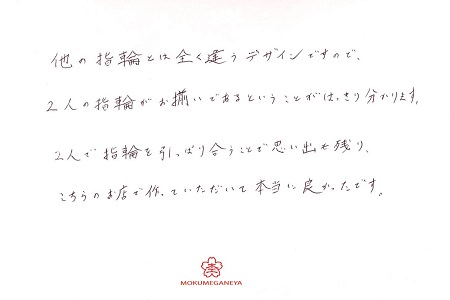 他の指輪とは全く違うデザインですので、
2人の指輪がお揃いであるということがはっきり分かります。
2人で指輪を引っぱり合うことで思い出も残り、
こちらのお店で作っていただいて本当に良かったです。
MOKUMEGANEYA